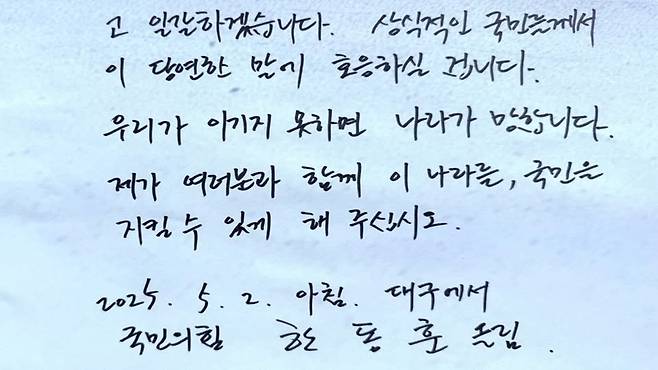 고 일갈하겠습니다. 상식적인 국민들께서
이 당연한 말에 호응하실 겁니다.
우리가 이기지 못하면 나라가 망합니다.
제가 여러분과 함께 이 나라를, 국민을
지킬 수 있게 해 주십시오.
2025. 5. 2. 아침. 대구에서
국민의힘 한동훈 올림.